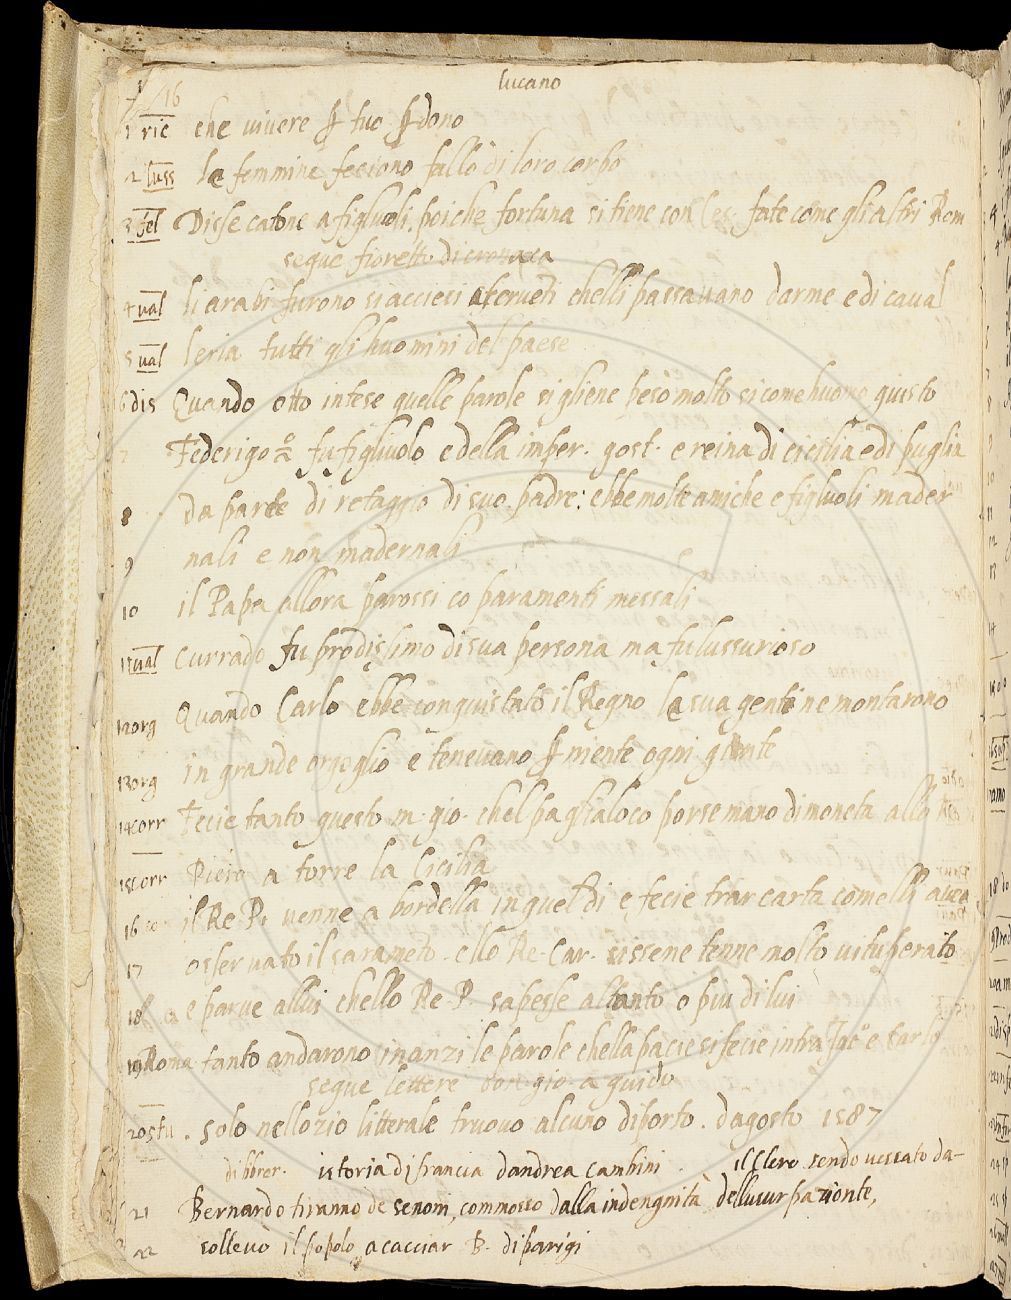 lucano
16
1 ric che vivere ꝑ tuo ꝑdono
2 luss le femmine feciono fallo di loro corpo
3 fel Disse catone a figliuoli, poiche fortuna si tiene con Ces. fate come gli altri Rom
segue fioretto di cronaca
4 val li arabi furono si acciesi e feruenti chelli passauano darme e di caual
5 val leria tutti gli huomini del paese
6 dis Quando otto intese quelle parole si gliene pesò molto sicome huomo giusto
7 Federigo 2º fu figliuolo e della imper. gost. e reina di cicilia e di puglia
8 da parte di retaggio di suo padre: ebbe molte amiche e figliuoli mader
9 nali e non madernali
10 il Papa allora parossi co paramenti messali
11 val currado fu prodissimo di sua persona ma fu lussurioso
12 org Quando Carlo ebbe conquistato il Regno la sua gente ne montarono
13 org in grande orgoglio e teneuano ꝑ niente ogni gente
14 corr Fecie tanto questo m. gio. chel paglialoco porse mano di moneta allo Re
15 corr Piero a torre la Cicilia
16 co il Re P. uenne a bordella in quel di e fecie trar carta comelli auea
17 osseruato il sarameto. ello Re. Car. sissene tenne molto uituperato
18 e parue allui chello Re P. sapesse altanto o piu di lui
19 Roma tanto andarono inanzi le parole chella pacie si fecie intra Iaº e Carlo
segue lettere don. gio. a guido
20 stu . solo nellozio litterale truouo alcuno diporto . dagosto 1587
di bbrer. istoria di francia dandrea cambini . il Clero sendo uessato da-
21 Bernardo tiranno de senoni, commosso dalla indengnità dellusurpazionte,
22 solleuò il popolo a cacciar B. di parigi